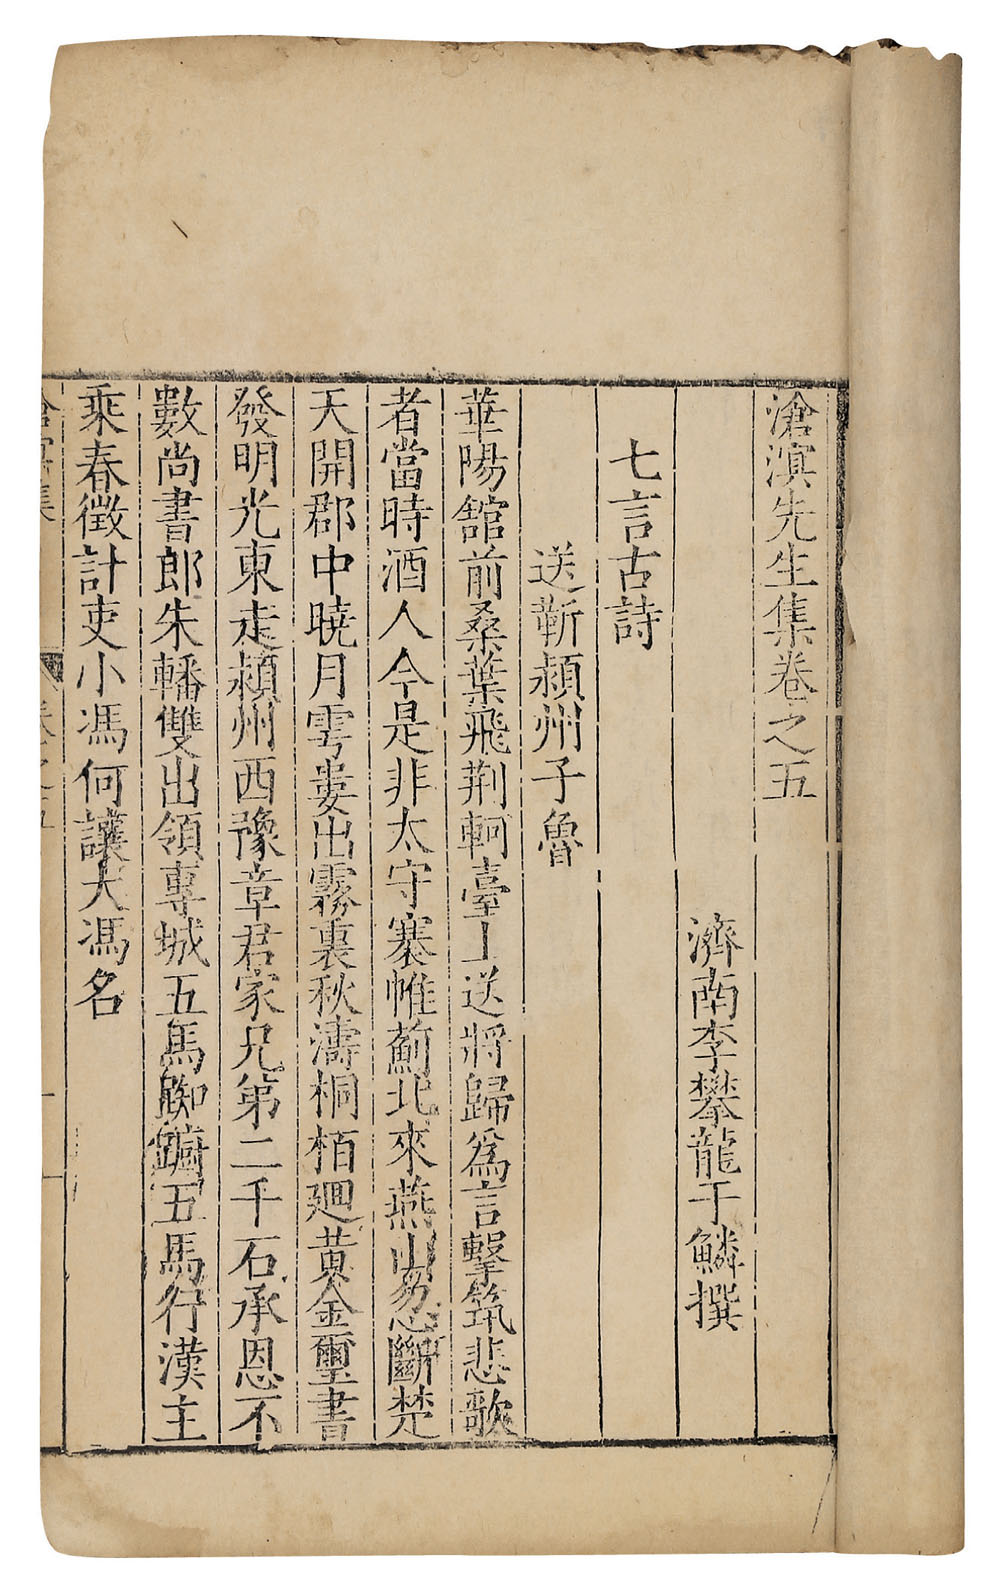 滄溟先生集卷之五
濟南李攀龍于鱗撰
七言古詩
送靳潁州子魯
華陽舘前桑葉飛荆軻臺上送將歸爲言擊筑悲歌
者當時酒人今是非太守褰帷薊北來燕山忽斷楚
天開郡中曉月雩婁出霧裏秋濤桐栢廻黃金璽書
發明光東走潁州西豫章君家兄第二千石承恩不
數尚書郎朱轓雙出領專城五馬踟躕五馬行漢主
乘春徵計吏小馮何讓大馮名
滄溟集 卷之五